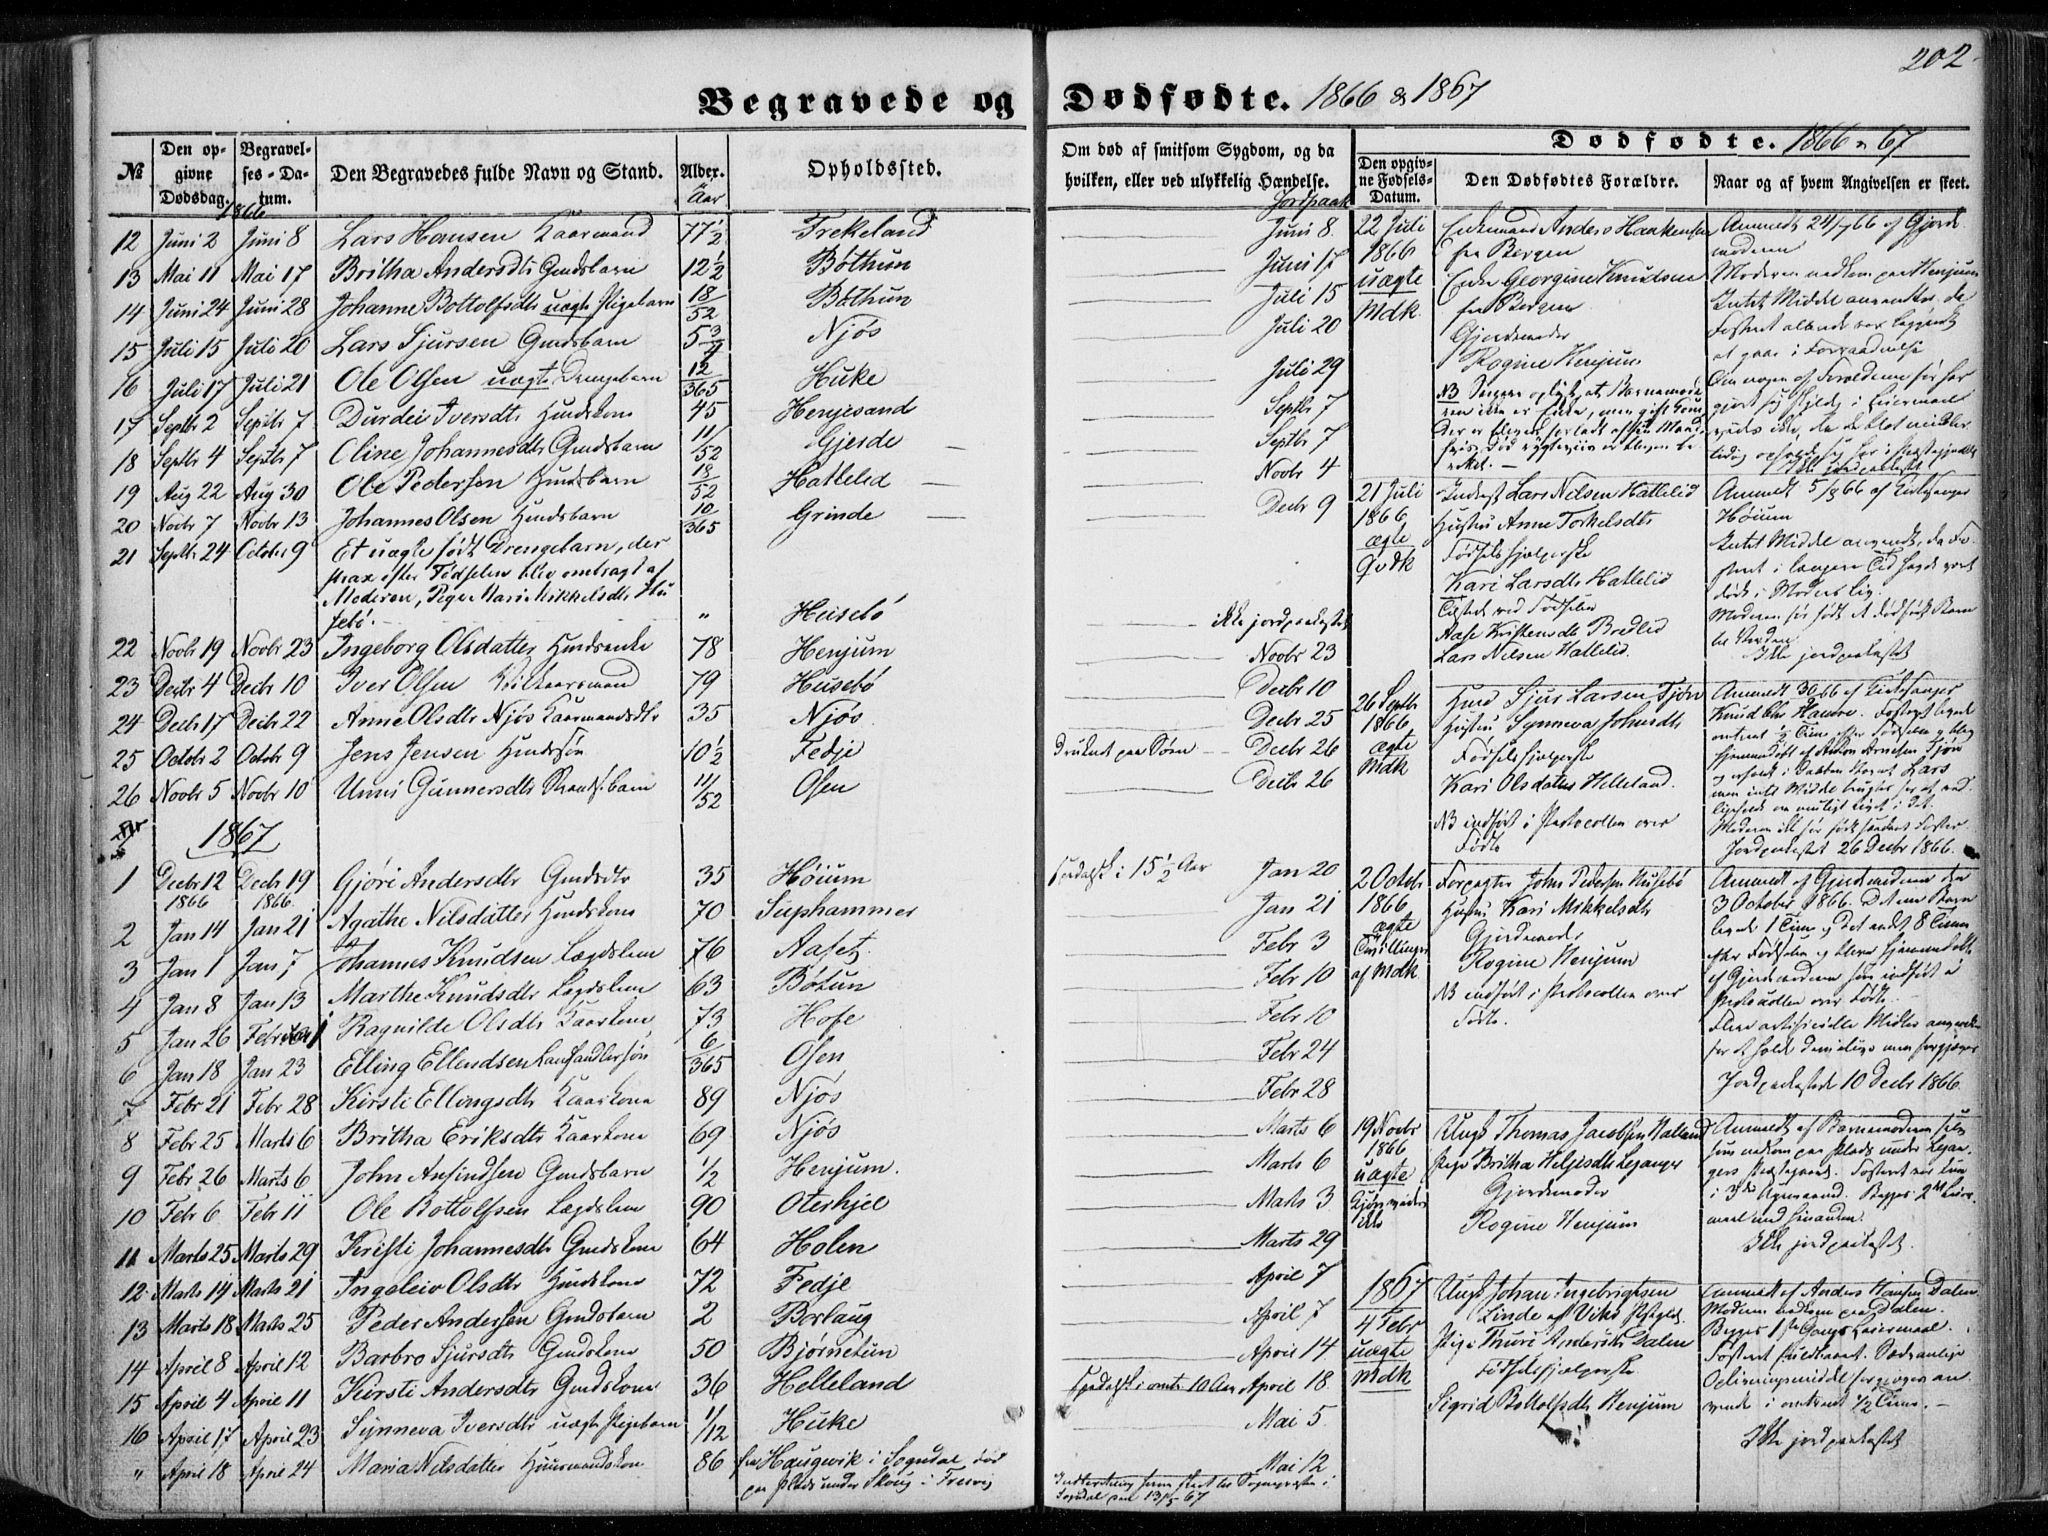 202
Begravede og Dødfødte. 1866 & 1867
Dødfødte. 1866 & 67
№
Den opgivne Dødsdag.
Begravelses-Datum.
Den Begravedes fulde Navn og Stand.
Alder.
Aar
Opholdssted.
Om død af smitsom Sygdom, og da hvilken, eller ved ulykkelig Hændelse.
Jordpaak
Den opgivne Fødsels-Datum.
Den Dødfødtes Forældre.
Naar og af hvem Angivelsen er skeet.
1866
12 Juni 2 Juni 8 Lars Hansen Kaarmand 77 1/2 Frekeland Juni 8
13 Mai 11 Mai 17 Britha Andersdtr Gmdsbarn 12 1/2 Bøthun Juni 17
14 Juni 24 Juni 28 Johanne Bottolfsdtr uægte Pigebarn 18/52 Bøthun Juli 15
15 Juli 15 Juli 20 Lars Sjursen Gmdsbarn 5 3/4 Njøs Juli 20
16 Juli 17 Juli 21 Ole Olsen uægte Drengebarn 12/365 Huke Juli 29
17 Septbr 2 Septbr 7 Durdei Iversdtr Hmdskone 45 Henjesand Septbr 7
18 Septbr 4 Septbr 7 Oline Johannesdtr Gmdsbarn 11/52 Gjerde Septbr 7
19 Aug 22 Aug 30 Ole Pedersen Hmdsbarn 18/52 Hatlelid Novbr 4
20 Novbr 7 Novbr 13 Johannes Olsen Hmdsbarn 10/365 Grinde Decbr 9
21 Septbr 24 October 9 Et uægte født Drengebarn, der
strax efter Fødselen blev ombragt af
Moderen, Pige Mari Mikkelsdtr Hu
sebø. " Heusebø ikke jordpaakastet
22 Novbr 19 Novbr 23 Ingeborg Olsdatter Hmdsenke 78 Henjum Novbr 23
23 Decbr 4 Decbr 10 Iver Olsen 79 Husebø Decbr 10
24 Decbr 17 Decbr 22 Anne Olsdtr Njøs Kaarmandsdtr 35 Njøs Decbr 25
25 Octobr 2 Octobr 9 Jens Jensen Hmdssøn 10 1/2 Fedje Druknet paa Søen Decbr 26
26 Novbr 5 Novbr 10 Unni Gunnersdtr Strands.barn 11/52 Osen Decbr 26
1867
1 Decbr 12 1866 Decbr 19 1866 Gjøri Andersdtr Gmdsdtr 35 Høium spedalsk i 15 1/2 Aar Jan 20
2 Jan 14 Jan 21 Agathe Nilsdatter Hmdskone 70 Suphammer Jan 21
3 Jan 1 Jan 7 Johannes Knudsen Lægdslem 76 Aaset Febr 3
4 Jan 8 Jan 13 Marthe Knudsdtr Lægdslem 63 Bøtun Febr 10
5 Jan 26 Februar 1 Ragnilde Olsdtr Kaarkone 73 Hofe Febr 10
6 Jan 18 Jan 23 Elling Ellendsen Landhandlersøn 6/365 Osen Febr 24
7 Febr 21 Febr 28 Kirsti Ellingsdtr Kaarkone 89 Njøs Febr 28
8 Febr 25 Marts 6 Britha Eriksdtr Kaarkone 69 Njøs Marts 6
9 Febr 26 Marts 6 John Ansindsen Gmdsbarn 1/2 Henjum. Marts 6
10 Febr 6 Febr 11 Ole Bottolfsen Lægdslem 90 Oterhjel Marts 3
11 Marts 25 Marts 29 Kristi Johannesdtr Gmdskone 64 Holen Marts 29
12 Marts 14 Marts 21 Ingeleiv Olsdtr Hmdskone 72 Fedje April 7
13 Marts 18 Marts 25 Peder Andersen Gmdsbarn 2 Borlaug April 7
14 April 8 April 12 Barbro Sjursdtr Gmdskone 50 Bjørnetun April 14
15 April 4 April 11 Kirsti Andersdtr Gmdskone 36 Helleland spedalsk i omtr. 10 Aar April 18
16 April 17 April 23 Synneva Iversdtr uægte Pigebarn 1/12 Huke Mai 5
" April 18 April 24 Maria Nilsdatter Huusmandskone 86 fra Haugevik i Sogndal død
paa Plads under Skoug i Fresvig Mai 12
Sogndal paa 13/5 67
22 Juli
1866
uægte
Mdk.
Enkemand Anders Haakensen
fra Bergen
Enke Georgine Knudsen
fra Bergen
Gjordemoder
Rogine Henjum
Anmeldt 24/7 66 af Gjorde
moderen
Moderen nedkom paa Henjum
Intet Middel anvendtes, da
Fosteret allerede var begyndt
at gaae i Forraadnelse
Ikke jordpaakastet
21 Juli
1866
ægte
Qvdk
Inderst Lars Nilsen Hatlelid
Hustru Anne Torkelsdtr
Fødselshjælperske
Kari Larsdtr Hatlelid
Tilstede ved Fødselen
Aase Kristensdtr Bredlid
Lars Nilsen Hatlelid.
Anmeldt 5/8 66 af Kirkesanger
Høium
Intet Middel anvendt, da Fo-
steret i længere Tid havde været
dødt i Moders Liv.
Moderen før født et dødfødt Barn
til Verden
Ikke jordpaakastet
26 Septbr
1866
ægte
Mdk
Hmd Sjur Larsen Tjøn
Hustru Synneva Johnsdtr
Fødselshjælperske
Kari Olsdatter Helleland.
NB indført i Protocollen over
Fødte
Jordpaakastet 26 Decbr 1866.
2 Octobr
1866
ægte
Tvillinger
af Mdk
Forpagter John Pedersen Husebø
Hustru Kari Mikkelsdtr
Gjordemoder
Rogine Henjum
NB indført i Protocollen over
Fødte.
Anmeldt af Gjordemoderen den
3 October 1866. Det ene Barn
levede 1 Time og det andet 8 Timer
efter Fødselen og bleve hjemmedøbte
af Gjordemoderen som indført i
Protocollen over Fødte.
Jordpaakastede 10 Decbr 1866.
19 Novbr
1866
uægte
Ungk Thomas Jacobsen Natland
Pige Britha Helgesdtr Leganger
Gjordemoder
Rogine Henjum
Anmeldt af Barnemoderen selv
som nedkom paa Plads under Legan-
gers Præstegaard. Fosteret var kun
Ikke jordpaakastet.
1867
4 Febr
uægte
Mdk
Ungk Johan Ingebrigtsen
Linde af Viks Pstgjeld
Pige Thuri Andersdtr Dalen
Fødselshjælperske
Sigrid Bottolfsdtr Henjum
Anmeldt af Anders Hansen Dalen
Moderen nedkom paa Dalen.
Begges 1ste Gangs Leiermaal.
Fosteret fuldbaaret. Sædvanlige
Oplivningsmidler forgjæves an
vendt i omtrent 1/2 Time.
Ikke jordpaakastet